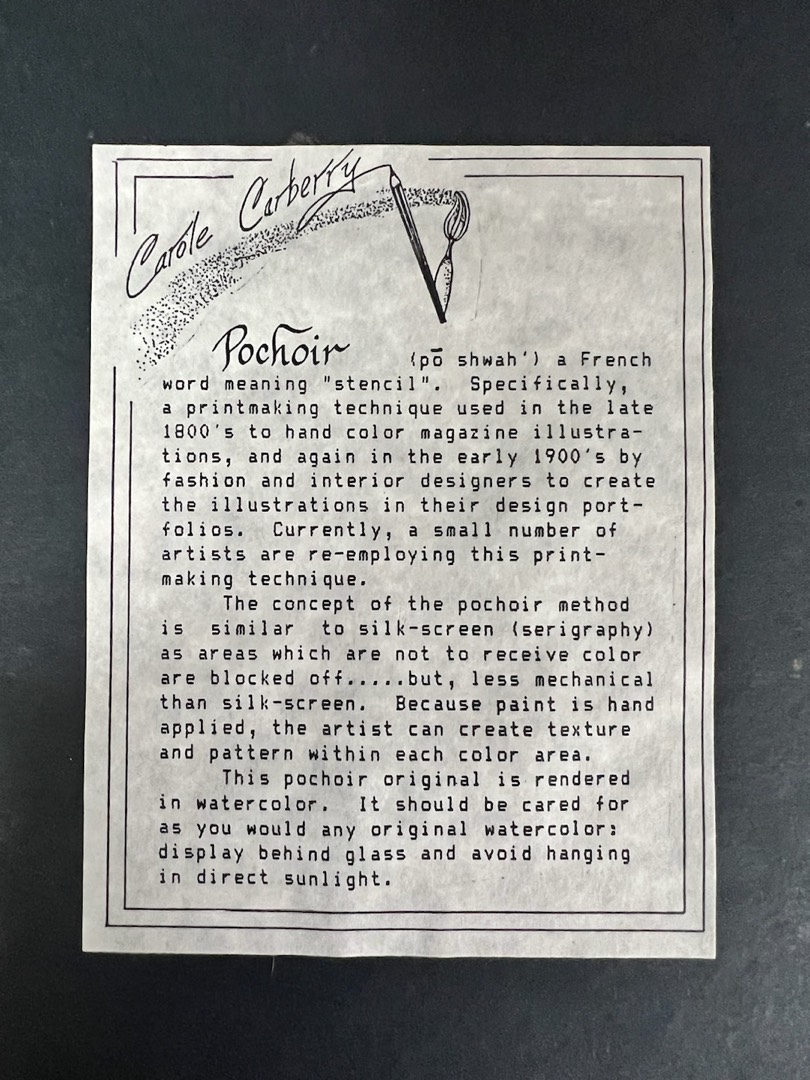 Carole Carberry
Pochoir (pō shwah') a French
word meaning "stencil". Specifically,
a printmaking technique used in the late
1800's to hand color magazine illustra-
tions, and again in the early 1900's by
fashion and interior designers to create
the illustrations in their design port-
folios. Currently, a small number of
artists are re-employing this print-
making technique.
The concept of the pochoir method
is similar to silk-screen (serigraphy)
as areas which are not to receive color
are blocked off.....but, less mechanical
than silk-screen. Because paint is hand
applied, the artist can create texture
and pattern within each color area.
This pochoir original is rendered
in watercolor. It should be cared for
as you would any original watercolor:
display behind glass and avoid hanging
in direct sunlight.